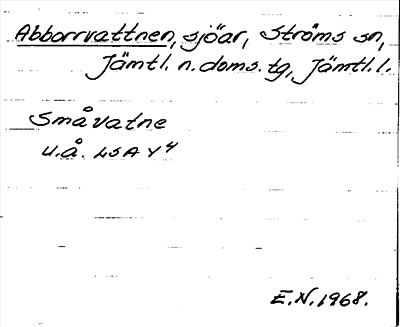 Abborrvattnen, sjöar, Ströms sn,
Jämtl. n. doms. tg, Jämtl. l.
Småvatne
u.å. LSA Y4
E.N. 1968.